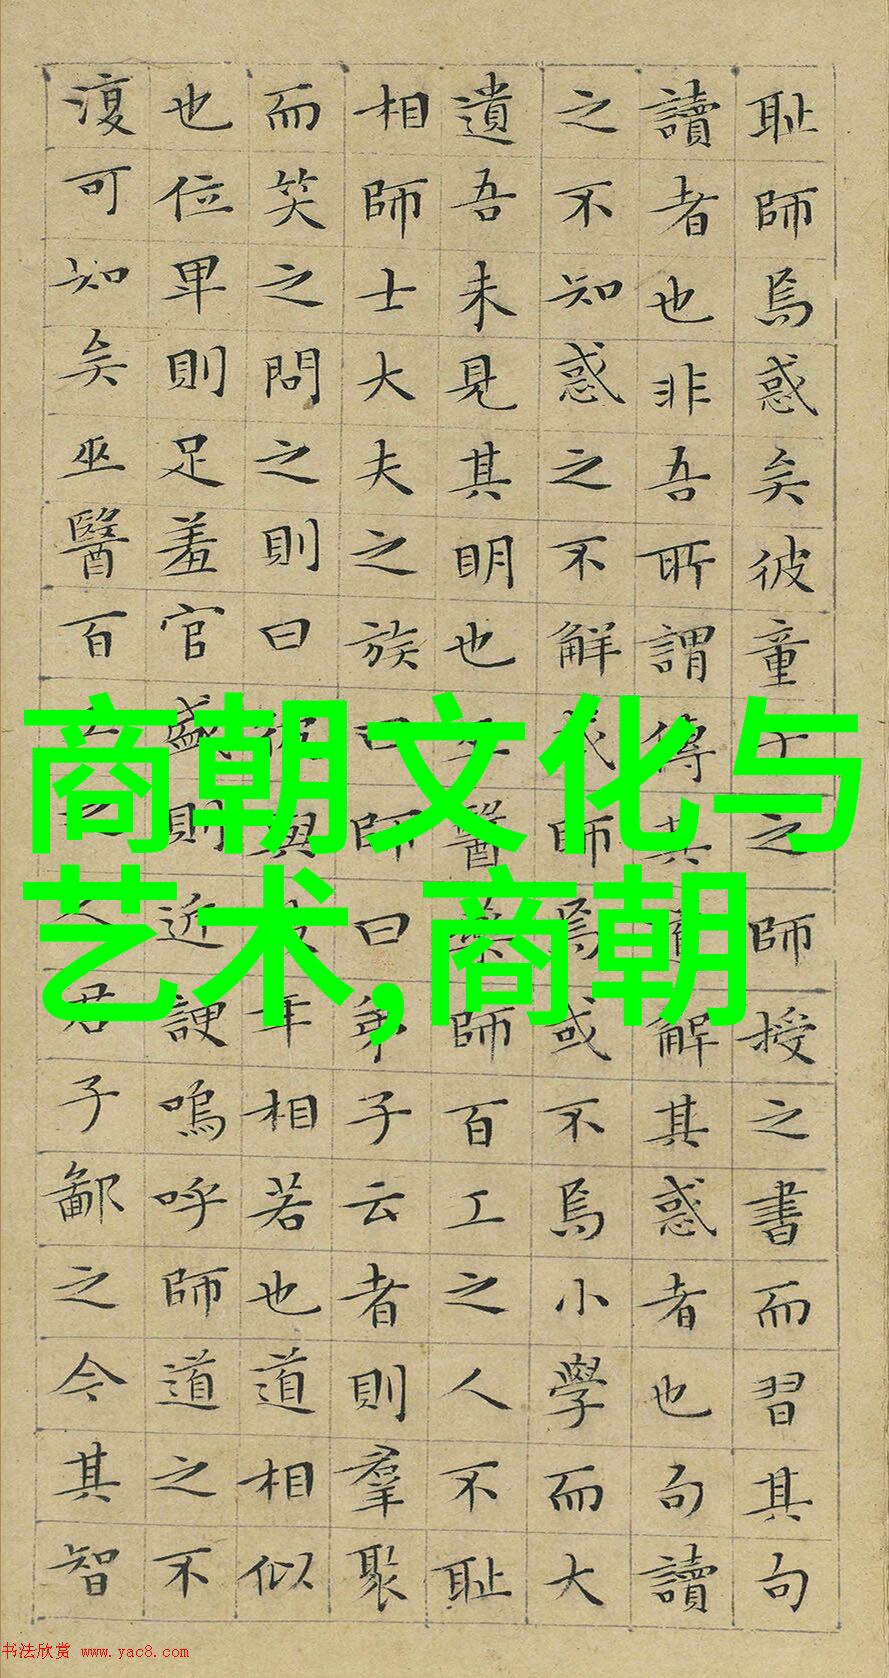 耻師焉惑矣彼童子之師授之書而習其句
讀者也非吾所謂傳其道解其惑者也句讀
之不知惑之不解或師焉或不焉小學而大
遺吾未見其明也巫醫藥師百工之人不耻
相師士大夫之族曰師曰弟子云者則羣聚
而笑之問之則曰彼與彼年相若也道相似
也位卑則足羞官盛則近諛嗚呼師道之不
復可知矣巫醫百工之人君子鄙之今其智
商朝文化与
艺术,商朝
书法欣赏 www.yac8.com